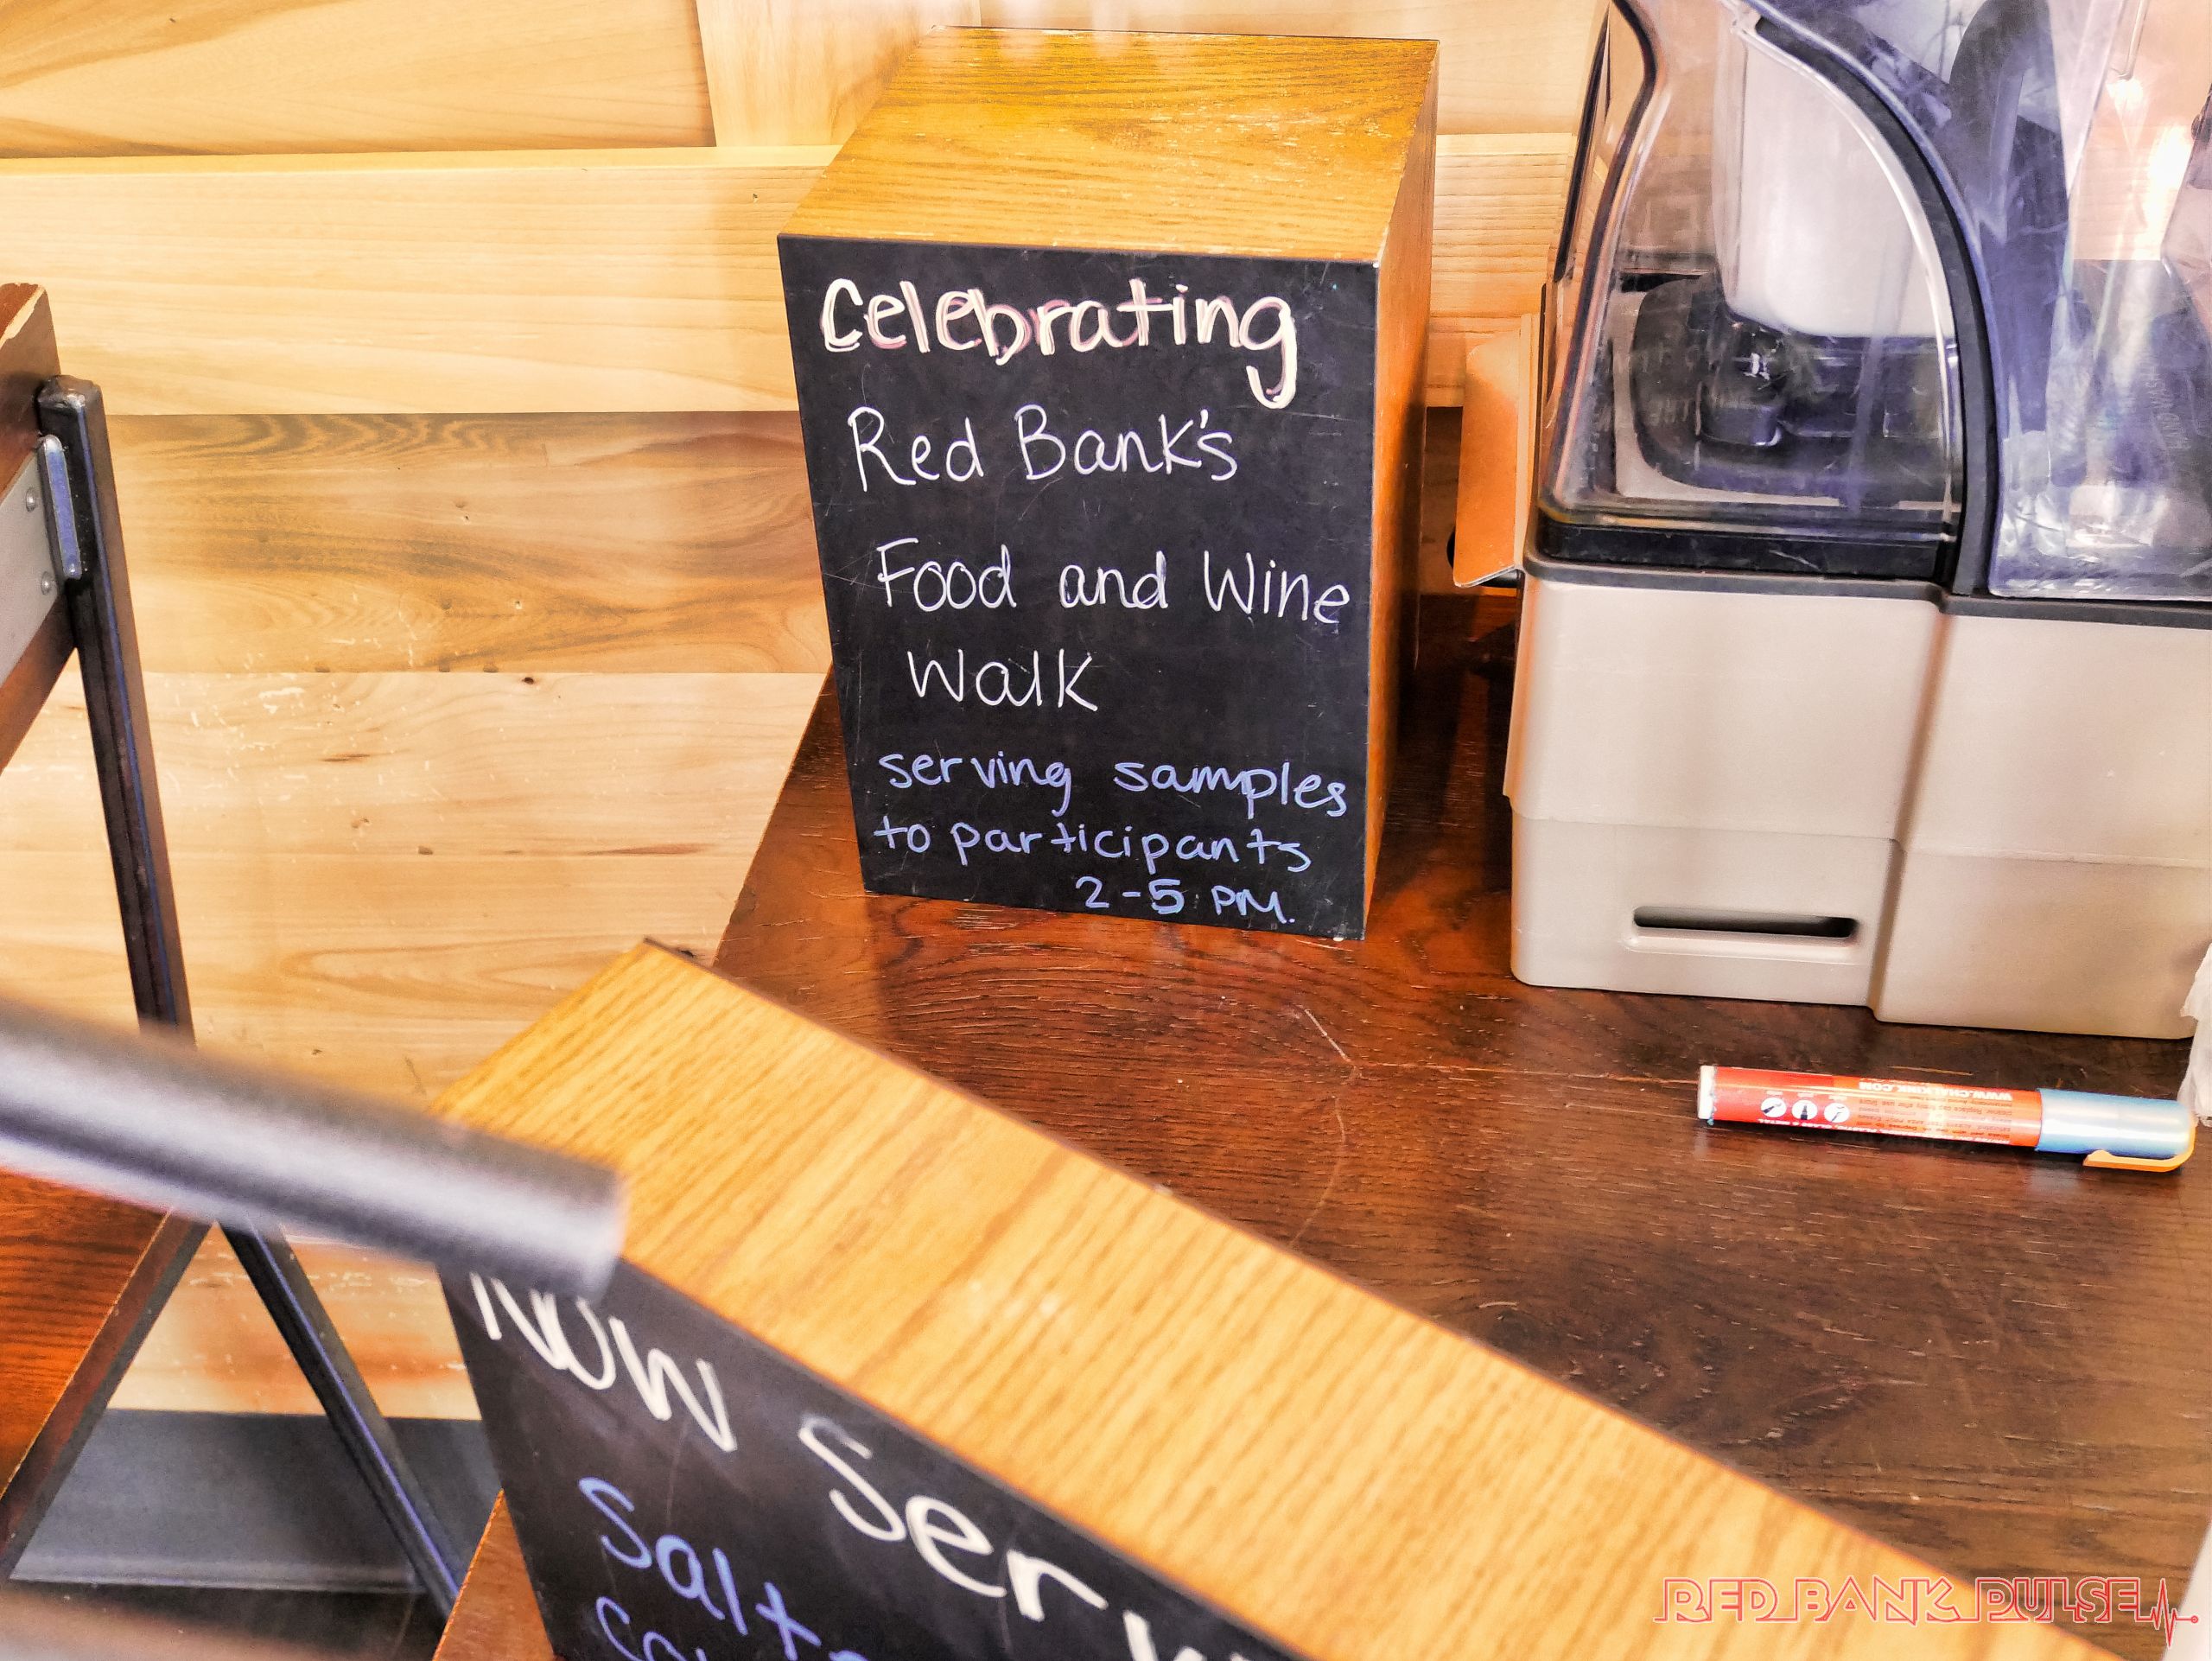 Celebrating
Red Bank's
Food and Wine
Walk
serving samples
to participants
2-5 PM.
NOW Serv
Salt
RED BANK PULSE